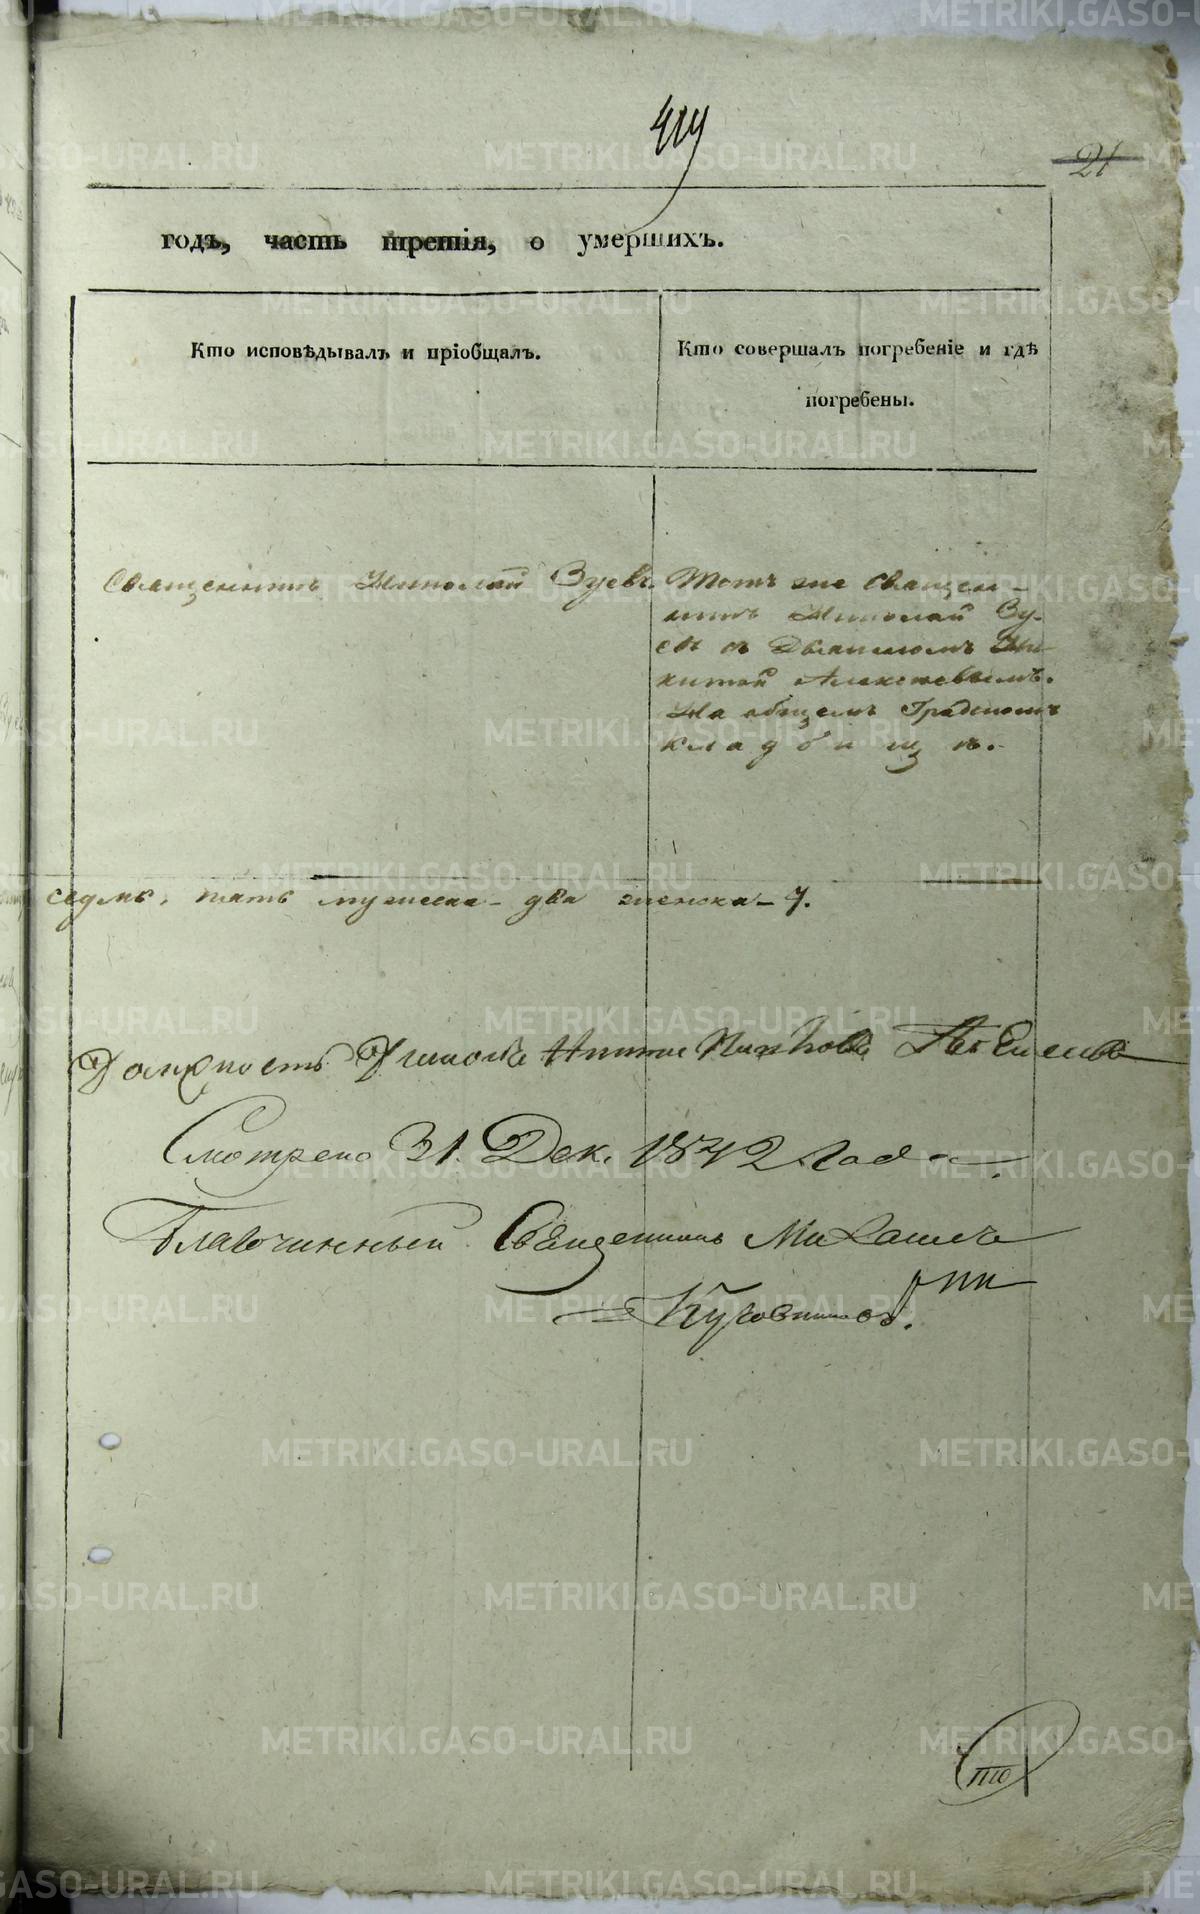 419
21
годъ, часть третія, о умершихъ.
Кто исповѣдывалъ и пріобщалъ.
Кто совершалъ погребеніе и гдѣ
погребены.
Священникъ Николай Зуевъ.
Тотъ же Священ-
никъ Николай Зу-
евъ съ Дьякономъ Ни-
китой Алексѣевымъ.
На общемъ Градскомъ
кладбищѣ.
седмь, пять мужеска - два женска - 7.
Должность
Смотрено 31. Дек. 1842 года
Благочинный Священникъ Михаилъ
METRIKI.GASO-URAL.RU